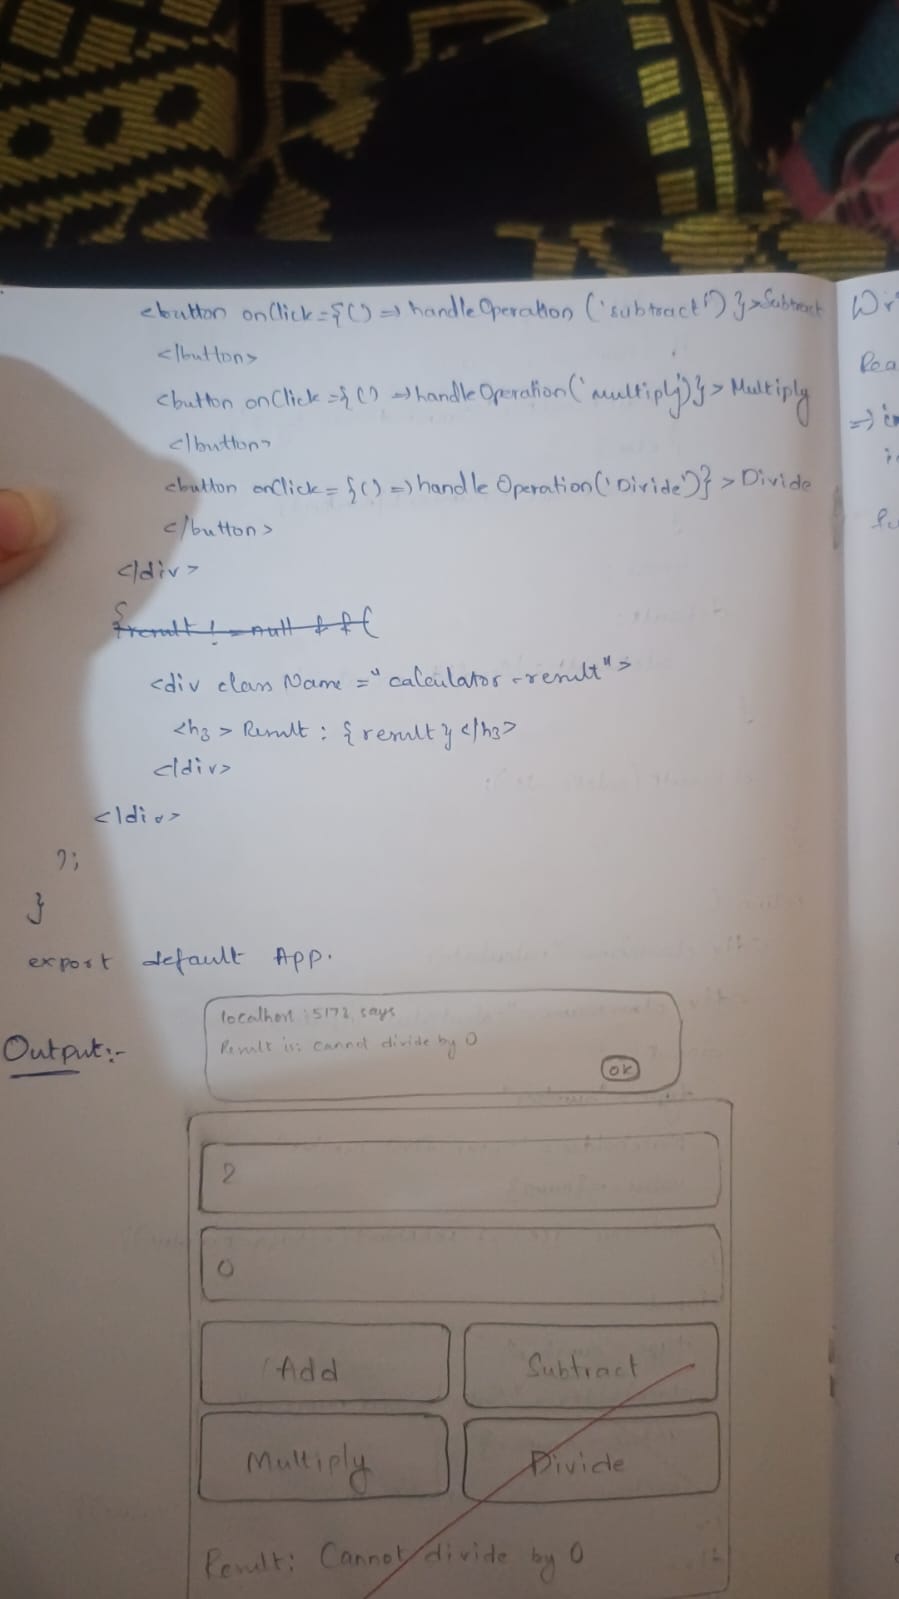 <button onClick={() => handleOperation ('subtract')}>Subtract
</button>
<button onClick={() => handleOperation('multiply')}> Multiply
</button>
<button onClick={() => handleOperation('Divide')}> Divide
</button>
</div>
{result != null && (
<div className="calculator-result">
<h3> Result : {result}</h3>
</div>
</div>
);
}
export default App.
Output:-
localhost:5173 says
Result is: cannot divide by 0
OK
2
0
Add
Subtract
Multiply
Divide
Result: Cannot divide by 0